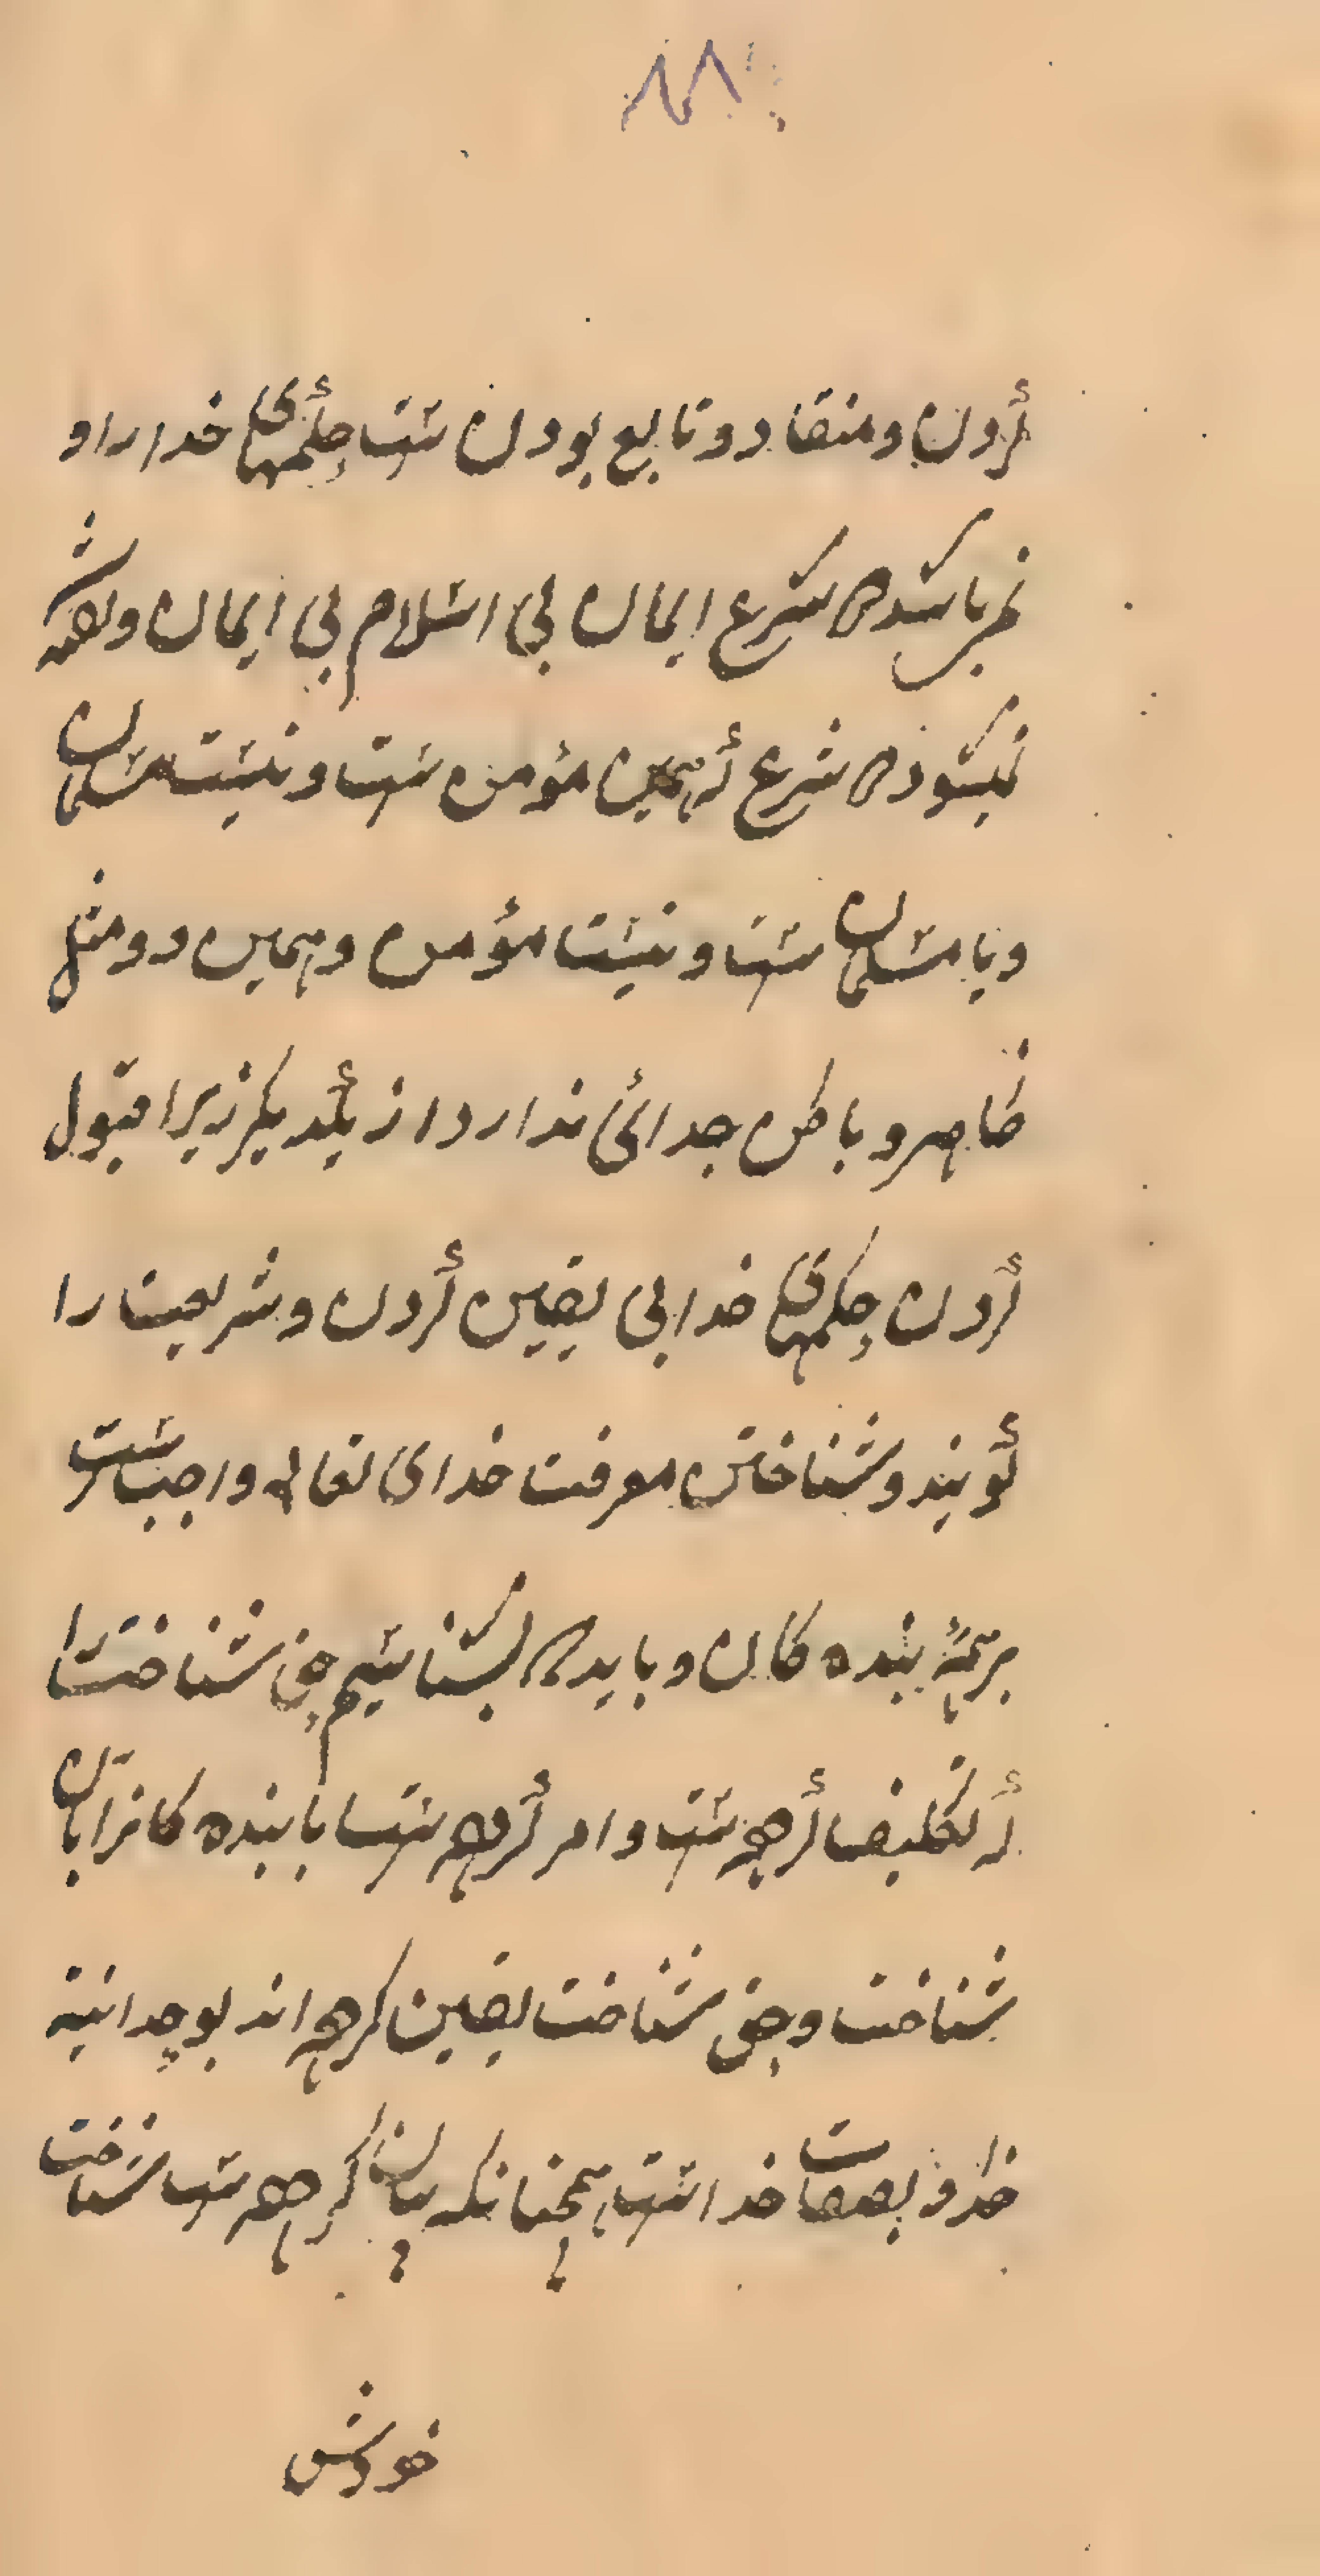 کردن و منقاد و تابع بودن ست حکمهای خدا را و
نمی باشد در شرع ایمان بی اسلام بی ایمان و
نمیشود در شرع که همین مؤمن ست و نیست مسلمان
و یا مسلمان ست و نیست مؤمن و همین دو مثل
ظاهر و باطن جدائی ندارد از یکدیگر زیرا قبول
کردن حکمهای خدا بی یقین کردن و شریعت را
گویند و شناختن معرفت خدای تعالی واجب ست
بر همهٔ بنده کان و باید که بشناسیم حق شناخت را
که تکلیف کرده ست و امر کرده ست با بنده کانرا بان
شناخت و حق شناخت یقین کرده اند بوحدانیة
خدا و بصفات خداست همچنانکه بیان کرده ست شناخت
خودش